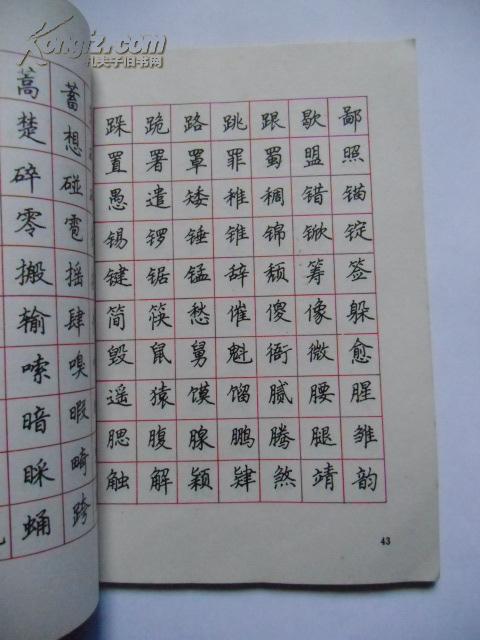 Kongfz.com
孔夫子旧书网
蒿 蓄
楚 想
碎 碰
零 雹
搬 摇
输 肆
嗦 嗅
暗 暇
睬 畸
蛹 跨
跺 跪 路 跳 跟 歇 鄙
置 署 罩 罪 蜀 盟 照
愚 遣 矮 稚 稠 错 锚
锡 锣 锤 锥 锦 锨 锭
键 锯 锰 辞 颓 筹 签
简 筷 愁 催 傻 像 躲
毁 鼠 舅 魁 衙 微 愈
遥 猿 馍 馏 腻 腰 腥
腮 腹 腺 鹏 腾 腿 雏
触 解 颖 肄 煞 靖 韵
43